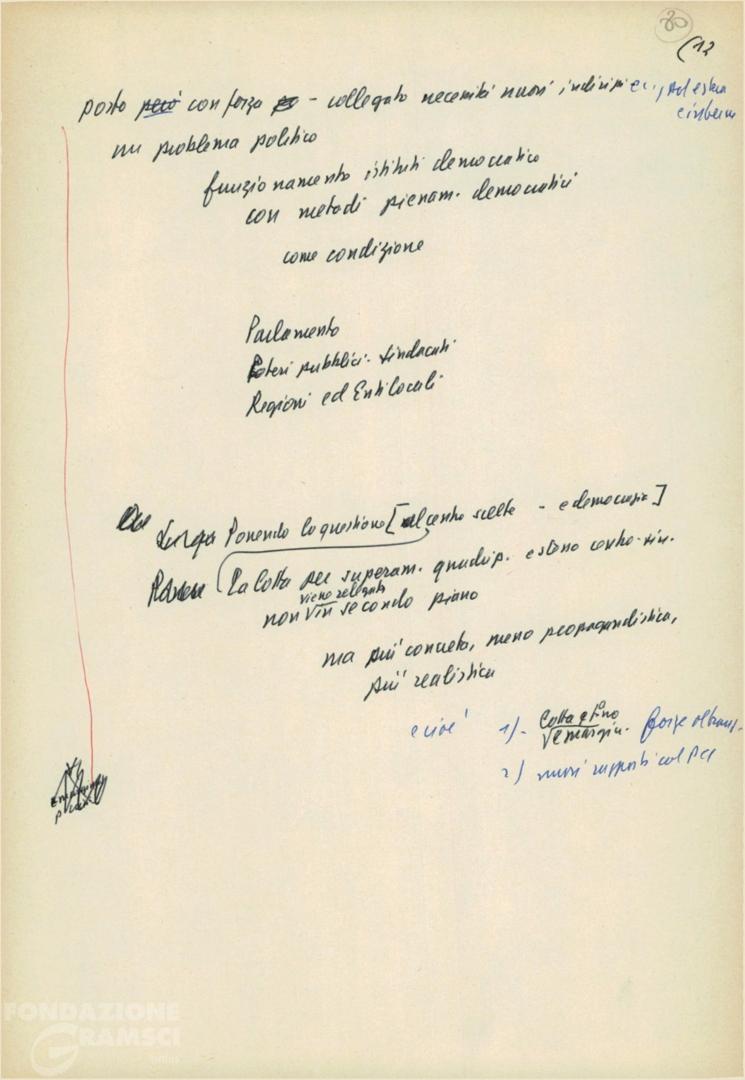 30
(12
posto però con forza - collegato necessità nuovi indirizzi ec., pol estera
e interna
un problema politico
funzionamento istituti democratico
con metodi pienam. democratici
come condizione
Parlamento
Poteri pubblici - sindacati
Regioni ed Enti locali
Ponendo la questione [al centro scelte - e democrazia]
La lotta per superam. quadrip. esterno centro-sin.
viene relegata
non in secondo piano
ma più concreta, meno propagandistica,
più realistica
e cioè 1) - Lotta a fino
e margin. forze oltranz.
2) nuovi rapporti col PCI
FONDAZIONE
GRAMSCI
onlus